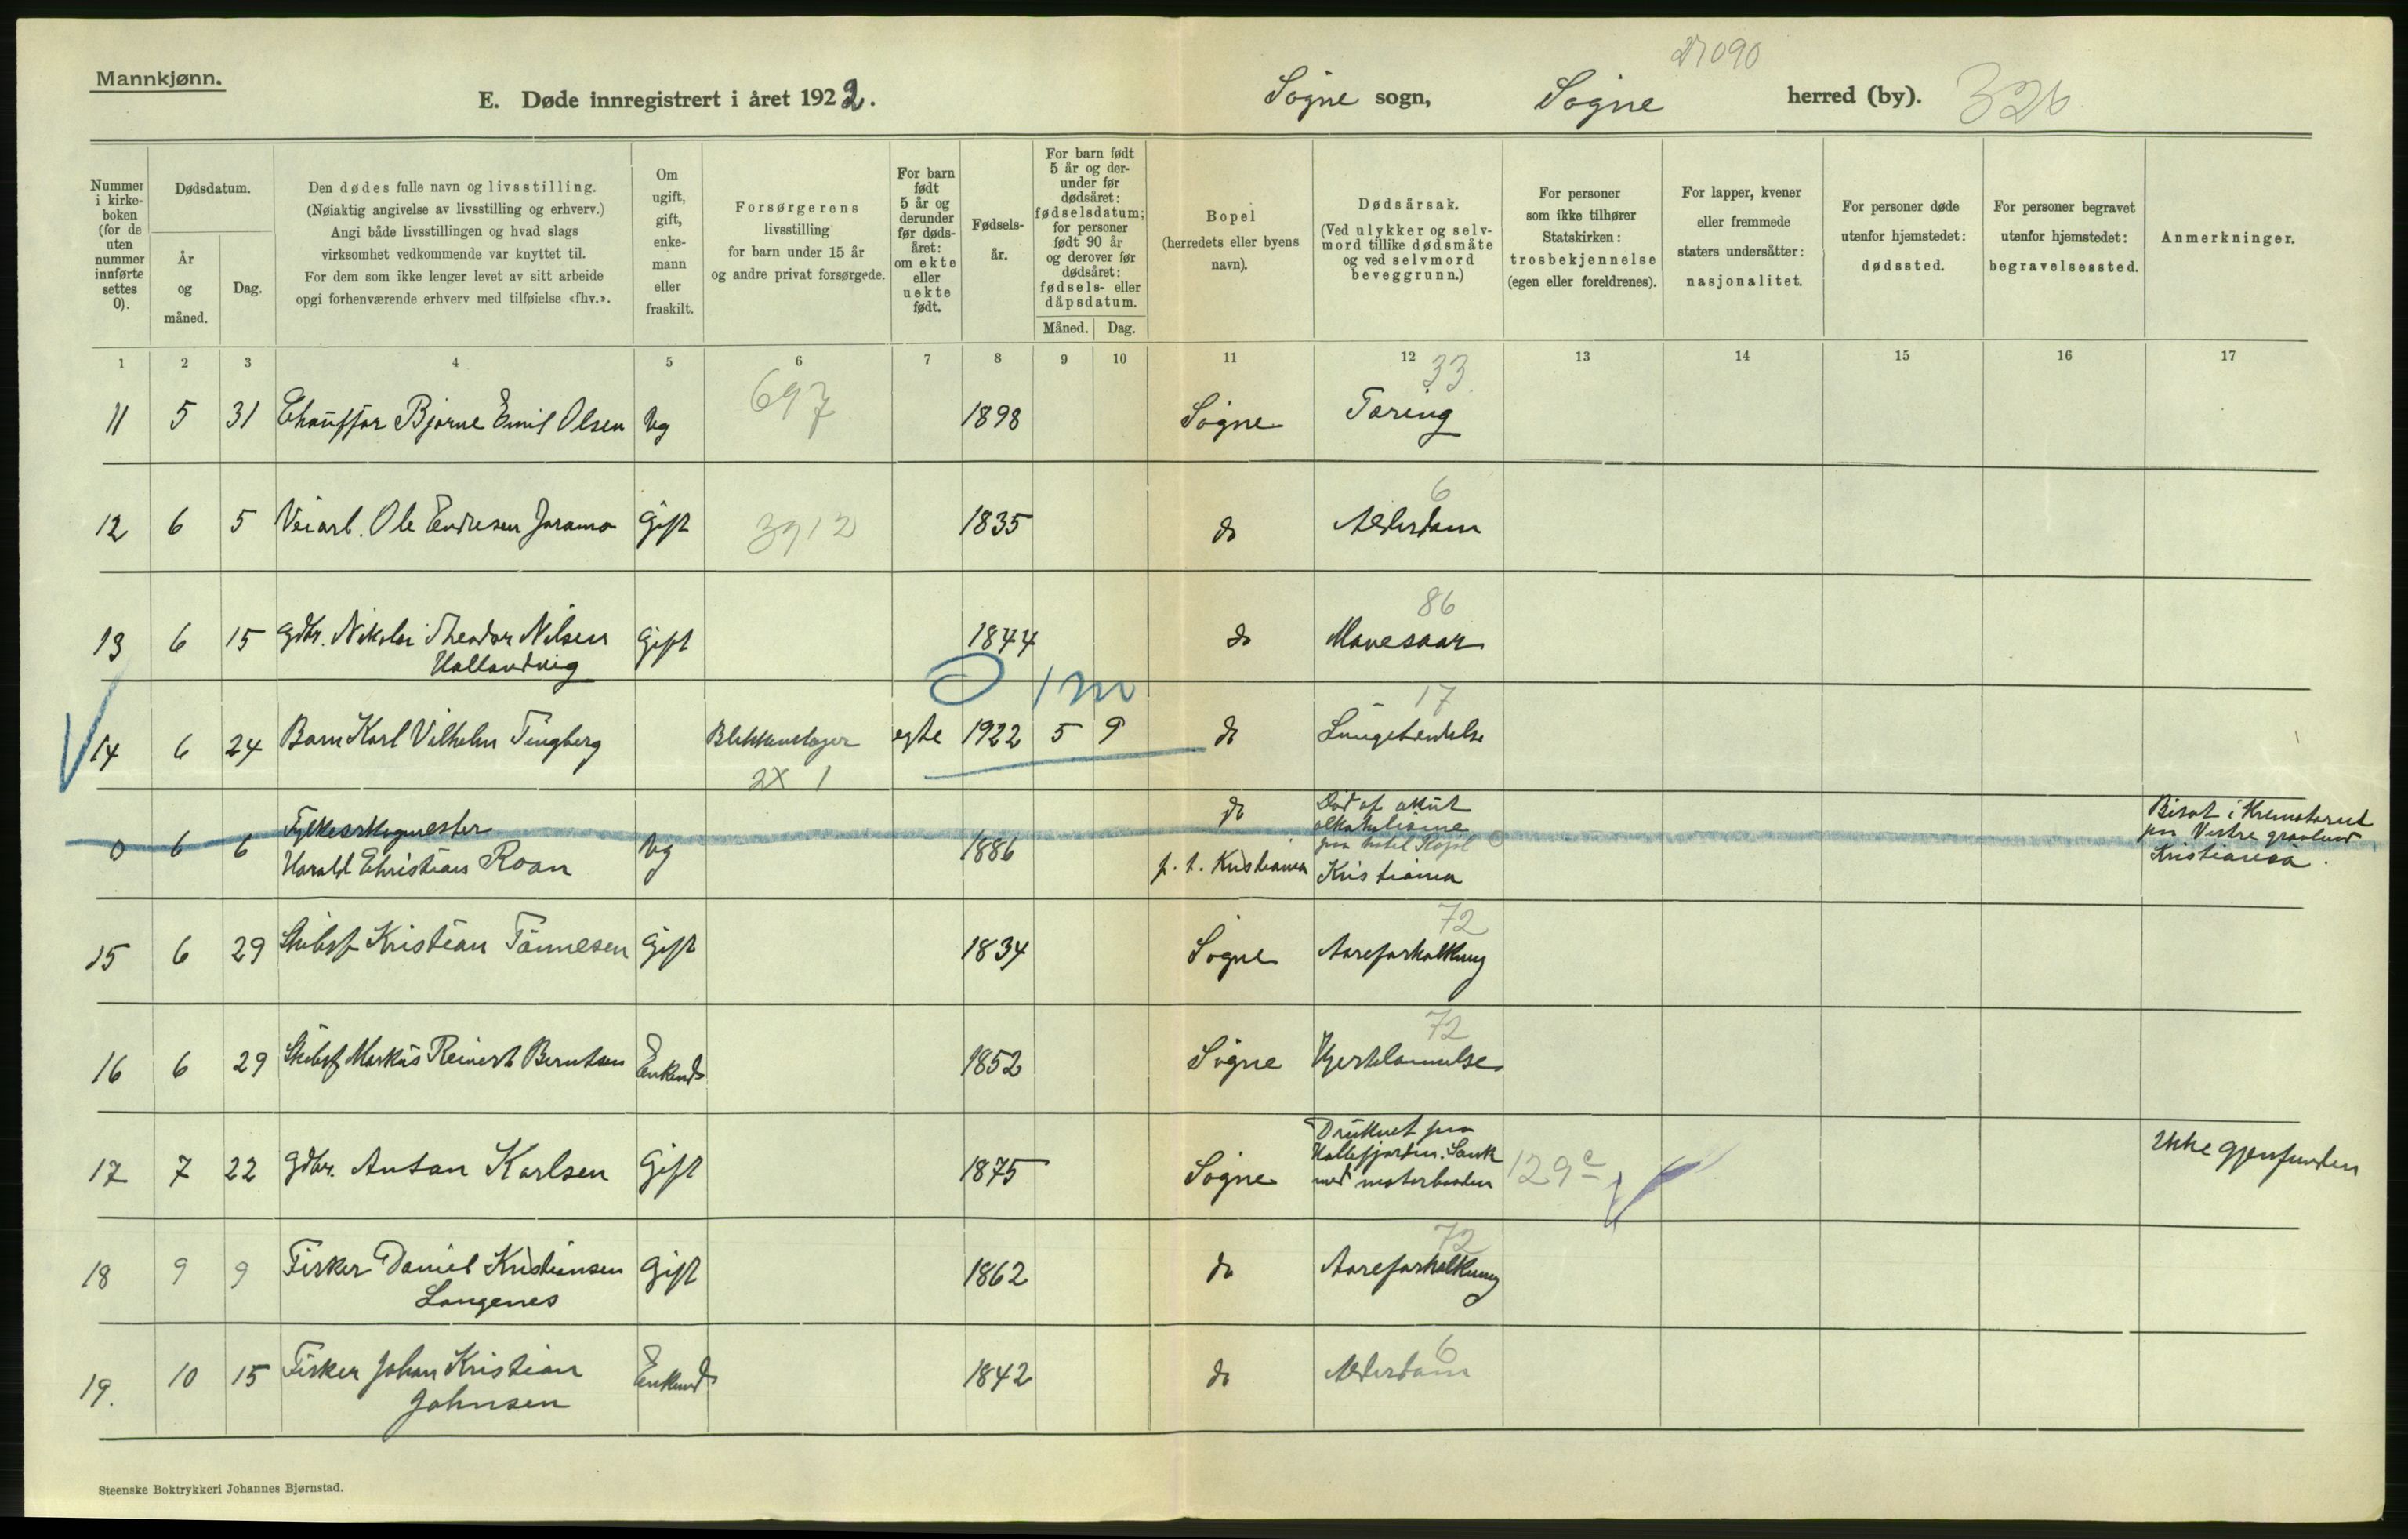 Mannkjønn.
E. Døde innregistrert i året 1922.
Søgne sogn, Søgne herred (by).
27090
326
Nummer i kirke-boken (for de uten nummer innførte settes 0).
Dødsdatum.
År og måned.
Dag.
Den dødes fulle navn og livsstilling.
(Nøiaktig angivelse av livsstilling og erhverv.)
Angi både livsstillingen og hvad slags
virksomhet vedkommende var knyttet til.
For dem som ikke lenger levet av sitt arbeide
opgi forhenværende erhverv med tilføielse «fhv.».
Om ugift, gift, enke-mann eller fraskilt.
Forsørgerens
livsstilling
for barn under 15 år
og andre privat forsørgede.
For barn født 5 år og derunder før døds-året: om ekte eller uekte født.
Fødsels-år.
For barn født 5 år og der-under før dødsåret: fødselsdatum; for personer født 90 år og derover før dødsåret: fødsels- eller dåpsdatum.
Måned. Dag.
Bopel
(herredets eller byens
navn).
Dødsårsak.
(Ved ulykker og selv-
mord tillike dødsmåte
og ved selvmord
beveggrunn.)
For personer
som ikke tilhører
Statskirken:
trosbekjennelse
(egen eller foreldrenes).
For lapper, kvener
eller fremmede
staters undersåtter:
nasjonalitet.
For personer døde
utenfor hjemstedet:
dødssted.
For personer begravet
utenfor hjemstedet:
begravelsessted.
Anmerkninger.
1 2 3 4 5 6 7 8 9 10 11 12 13 14 15 16 17
697 33
11 5 31 Chauffør Bjarne Emil Olsen Ug 1898 Søgne Tæring
6
12 6 5 Veiarb. Ole Endresen Gift 3912 1835 do Alderdom
86
13 6 15 Gdbr. Nikolai Theodor Nilsen Gift 1844 do Mavesaar
Hallandvig
0 1 m 17
14 6 24 Barn Karl Vilhelm Tingberg Blikkenslager egte 1922 5 9 do Lungebetendelse
2X 1
0 6 6 Fylkesskogmester
Harald Christian Roan Ug 1886 do
p. t. Kristiania
Død af akut
alkoholisme
paa hotel
Kristiania
Bisat i Krematoriet
paa Vestre gravlund
Kristiania.
72
15 6 29 Skibsf Kristian Tønnesen Gift 1834 Søgne Aareforkalkning
72
16 6 29 Skibsf Markus Reinert Berntsen Enkemd 1852 Søgne Hjertelammelse
17 7 22 Gdbr. Anton Karlsen Gift 1875 Søgne
Druknet paa
Hallefjorden. Sank
med motorbaaden
129c
Ikke gjenfunden
72
18 9 9 Fisker Daniel Kristiansen Gift 1862 do Aareforkalkning
Langenes
6
19. 10 15 Fisker Johan Kristian Enkemd 1842 do Alderdom
Johnsen
Steenske Boktrykkeri Johannes Bjørnstad.